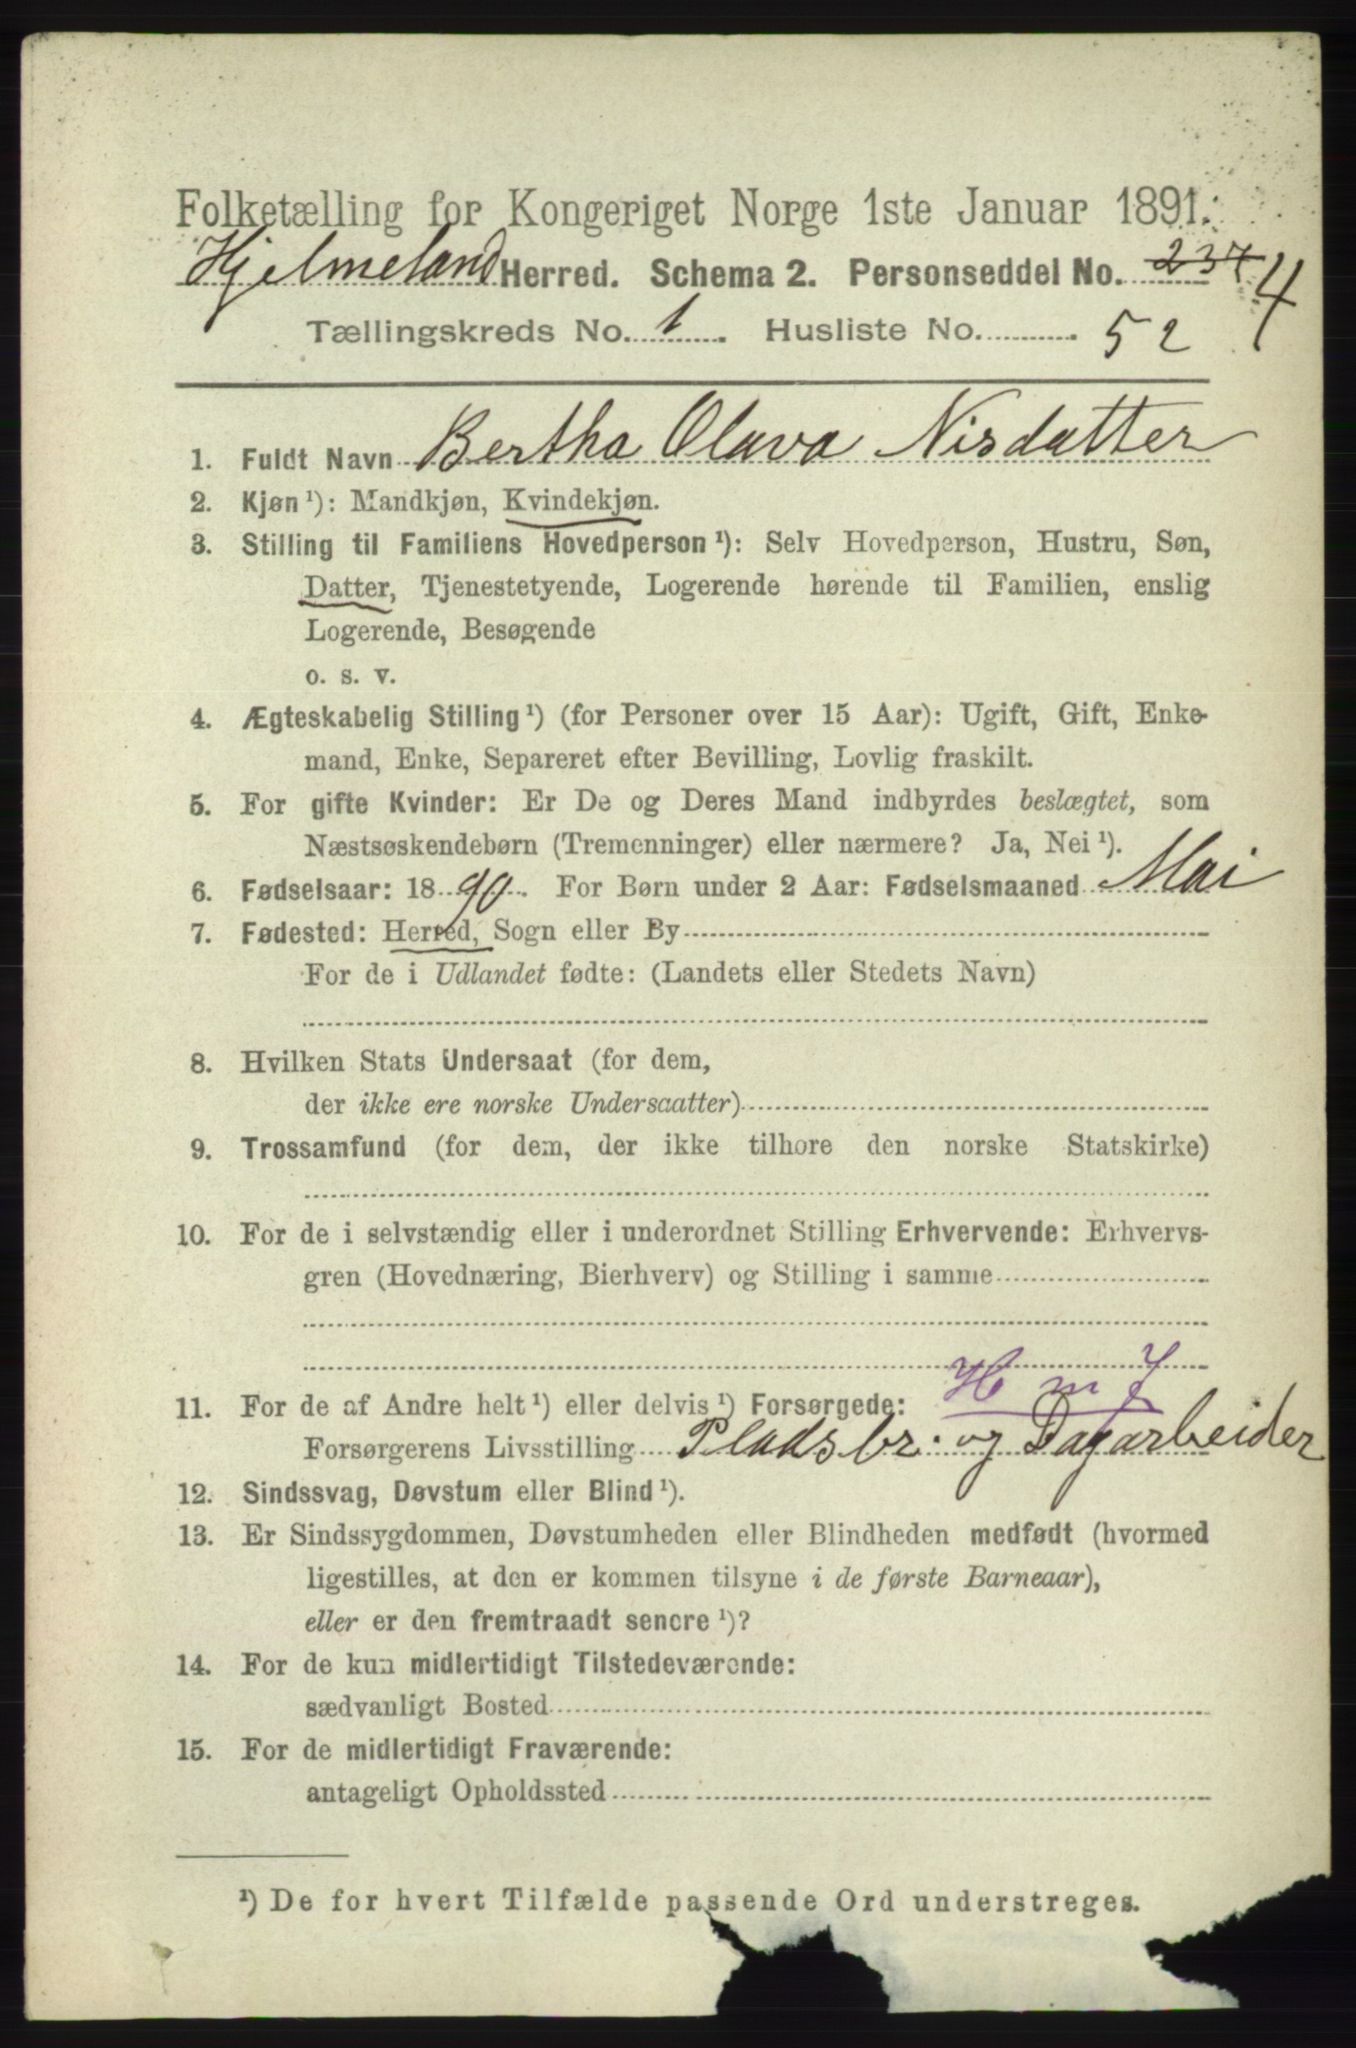 Folketælling for Kongeriget Norge 1ste Januar 1891.
Hjelmeland Herred. Schema 2. Personseddel No. 237 4
Tællingskreds No. 1. Husliste No. 52
1. Fuldt Navn Bertha Olava Nisdatter
2. Kjøn¹): Mandkjøn, Kvindekjøn.
3. Stilling til Familiens Hovedperson¹): Selv Hovedperson, Hustru, Søn,
Datter, Tjenestetyende, Logerende hørende til Familien, enslig
Logerende, Besøgende
o. s. v.
4. Ægteskabelig Stilling¹) (for Personer over 15 Aar): Ugift, Gift, Enke-
mand, Enke, Separeret efter Bevilling, Lovlig fraskilt.
5. For gifte Kvinder: Er De og Deres Mand indbyrdes beslægtet, som
Næstsøskendebørn (Tremenninger) eller nærmere? Ja, Nei¹).
6. Fødselsaar: 1890. For Børn under 2 Aar: Fødselsmaaned Mai
7. Fødested: Herred, Sogn eller By
For de i Udlandet fødte: (Landets eller Stedets Navn)
8. Hvilken Stats Undersaat (for dem,
der ikke ere norske Undersaatter)
9. Trossamfund (for dem, der ikke tilhøre den norske Statskirke)
10. For de i selvstændig eller i underordnet Stilling Erhvervende: Erhvervs-
gren (Hovednæring, Bierhverv) og Stilling i samme
11. For de af Andre helt¹) eller delvis¹) Forsørgede: H m J
Forsørgerens Livsstilling Pladsbr. og Dagarbeider
12. Sindssvag, Døvstum eller Blind¹).
13. Er Sindssygdommen, Døvstumheden eller Blindheden medfødt (hvormed
ligestilles, at den er kommen tilsyne i de første Barneaar),
eller er den fremtraadt senere¹)?
14. For de kun midlertidigt Tilstedeværende:
sædvanligt Bosted
15. For de midlertidigt Fraværende:
antageligt Opholdssted
¹) De for hvert Tilfælde passende Ord understreges.